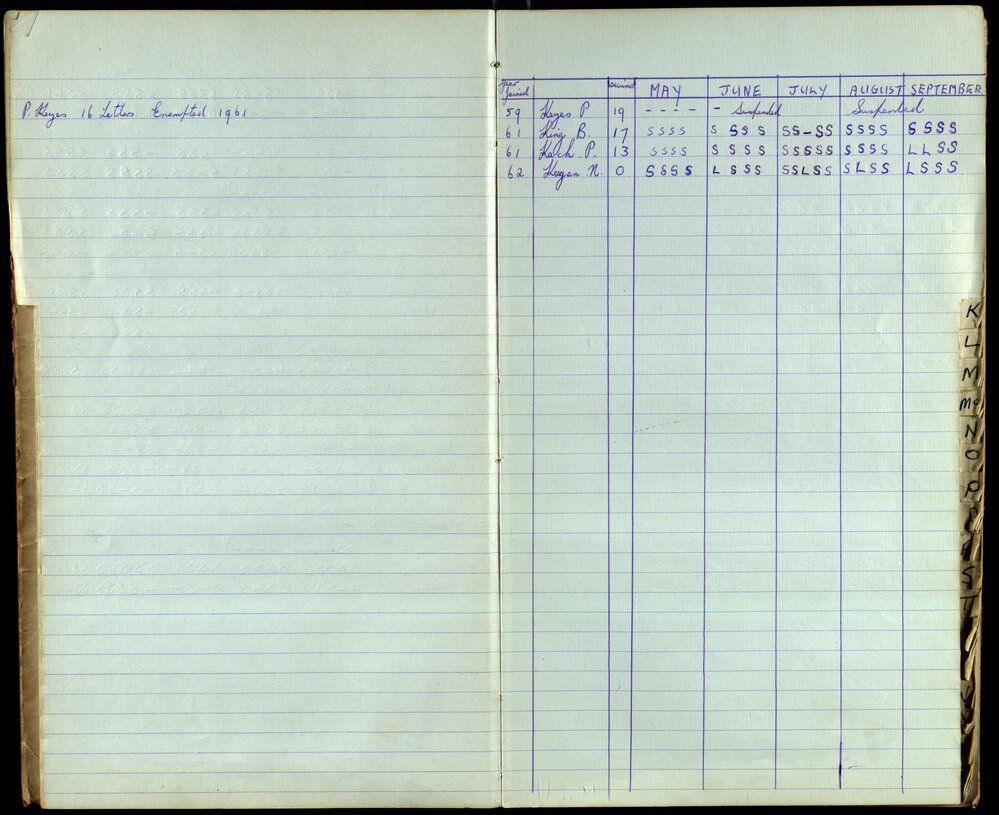 P. Keyes 16 Letters Exempted 1961
Year Joined MAY JUNE JULY AUGUST SEPTEMBER
59 Keyes P 19 - - - - - Suspended Suspended
61 King B. 17 S S S S S S S S S S - S S S S S S S S S S
61 Koch P. 13 S S S S S S S S S S S S S S S S S L L S S
62 Keegan N. 0 S S S S L S S S S S L S S S L S S L S S S
K
L
M
Mc
N
O
P
R
S
T